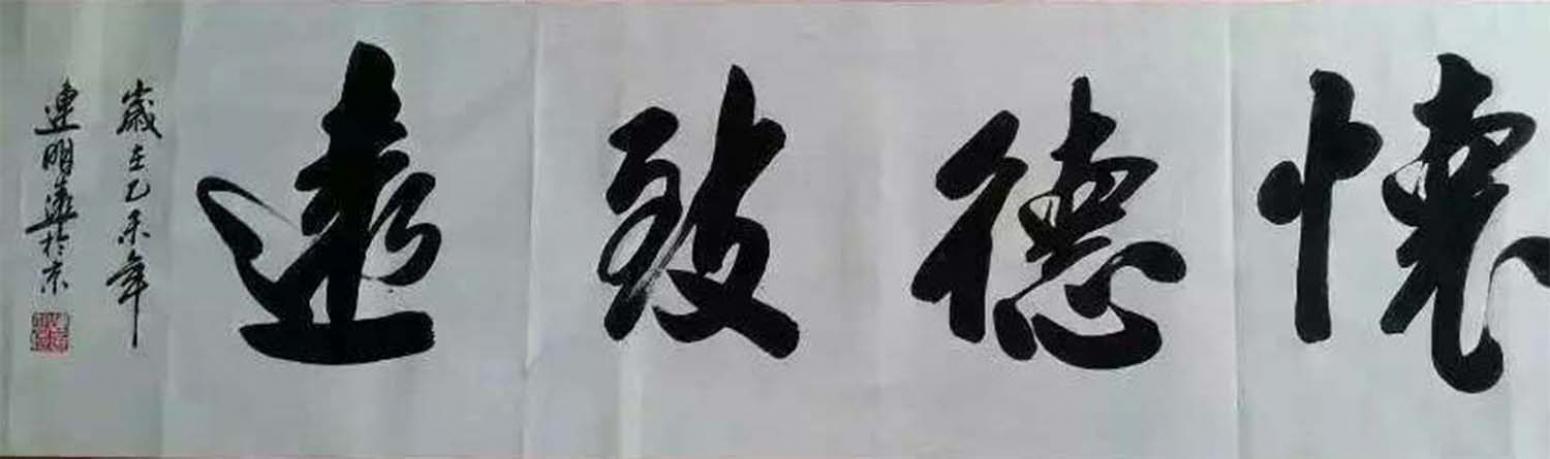 懷德致遠
歲在乙未年
連明義於京